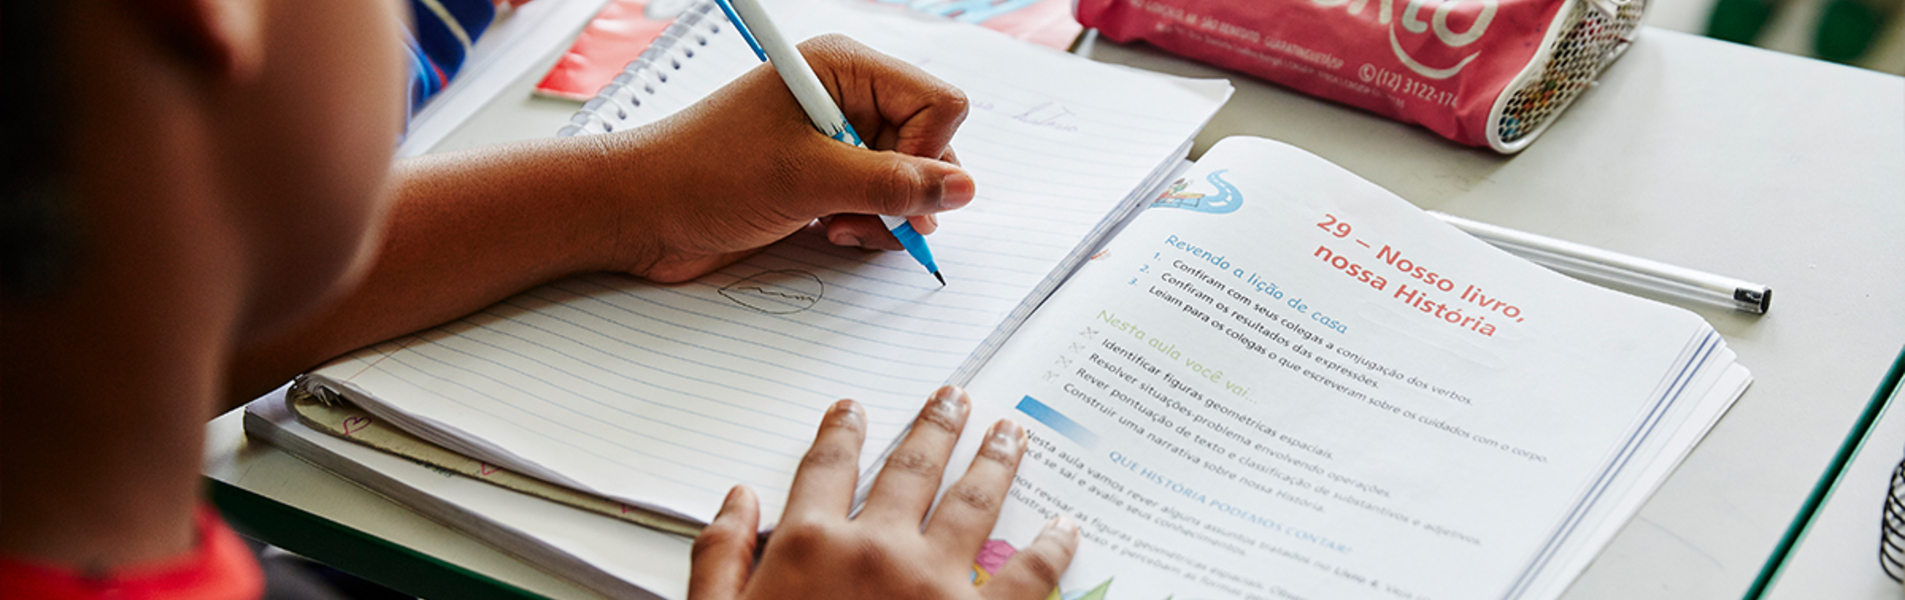 SÃO BENEDITO GUARATINGUETÁ/SP
(12) 3122-174
29 – Nosso livro,
nossa História
Revendo a lição de casa
1. Confiram com seus colegas a conjugação dos verbos.
2. Confiram os resultados das expressões.
3. Leiam para os colegas o que escreveram sobre os cuidados com o corpo.
Nesta aula você vai...
Identificar figuras geométricas espaciais.
Resolver situações-problema envolvendo operações.
Rever pontuação de texto e classificação de substantivos e adjetivos.
Construir uma narrativa sobre nossa História.
QUE HISTÓRIA PODEMOS CONTAR?
Nesta aula vamos rever alguns assuntos tratados no Livro 4.
se sai e avalie seus conhecimentos.
revisar as figuras geométricas espaciais.
e percebam as formas